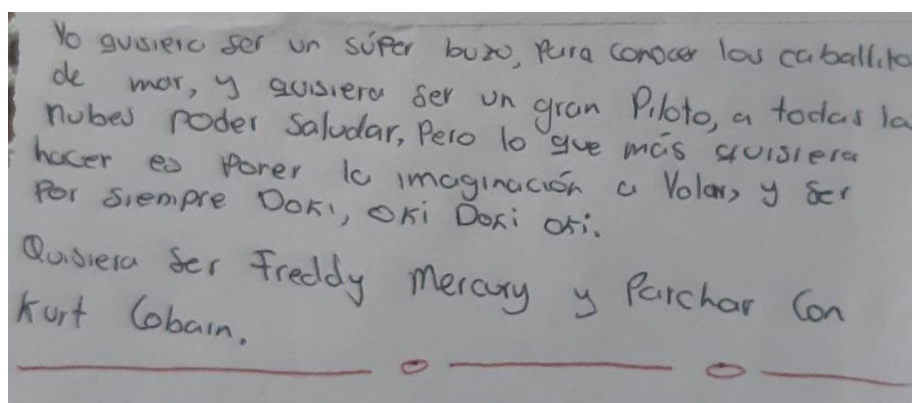 Yo quisiera ser un súper buzo, para conocer los caballito
de mar, y quisiera ser un gran Piloto, a todas la
nubes poder saludar, Pero lo que más quisiera
hacer es poner la imaginación a Volar, y ser
Por siempre Doki, oki Doki oki.
Quisiera ser Freddy Mercury y Parchar Con
Kurt Cobain.